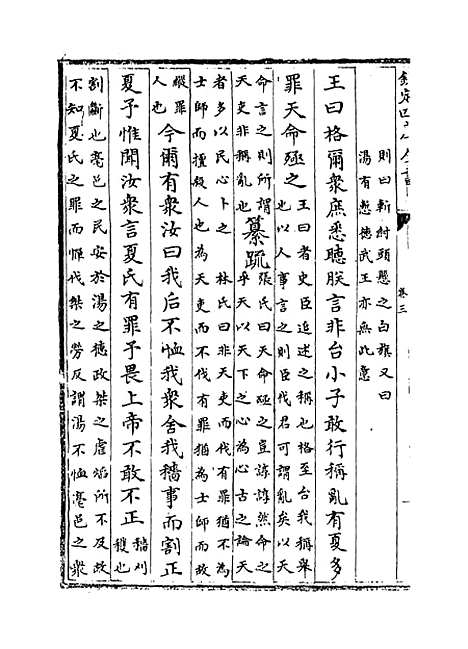 欽定四庫全書
卷三
則曰斬紂頭懸之白旗又曰
湯有慙德武王亦無此意
王曰格爾衆庶悉聽朕言非台小子敢行稱亂有夏多
罪天命殛之
王曰者史臣追述之稱也格至台我稱舉
也以人事言之則臣伐君可謂亂矣以天
命言之則所謂
天吏非稱亂也
纂疏
張氏曰天命殛之豈諄諄然命之
乎天以天下之心為心古之論天
者多以民心卜之
林氏曰非天吏而伐有罪猶不為
士師而擅殺人也為天吏而不伐有罪猶為士師而故
縱罪
人也
今爾有衆汝曰我后不恤我衆舍我穡事而割正
夏予惟聞汝衆言夏氏有罪予畏上帝不敢不正
穡刈
穫也
割斷也亳邑之民安於湯之德政桀之虐焰所不及故
不知夏氏之罪而憚伐桀之勞反謂湯不恤亳邑之衆